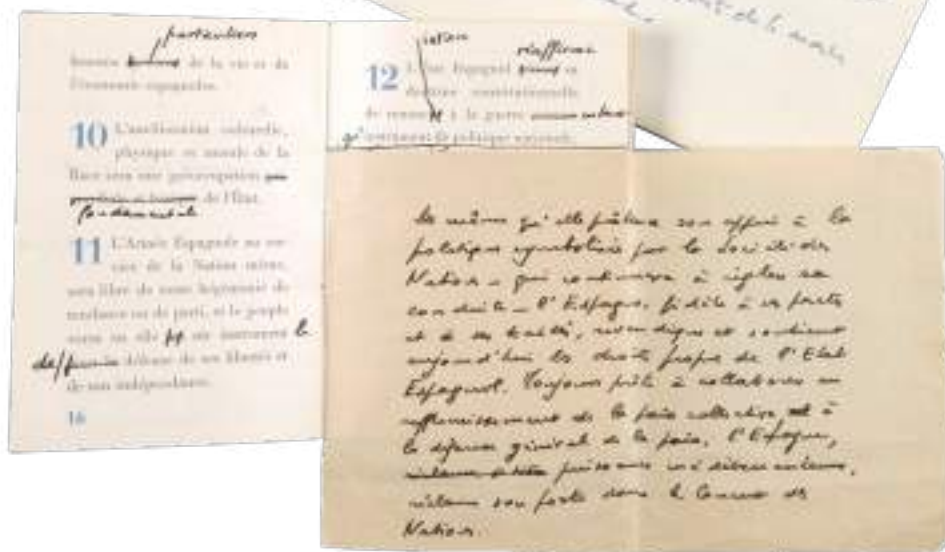 particulière
de la vie et de
l'économie espagnoles.
10 L'amélioration culturelle,
physique et morale de la
Race sera une préoccupation
fondamentale de l'État.
11 L'Armée Espagnole au ser-
vice de la Nation même,
sera libre de toute hégémonie de
tendance ou de parti, et le peuple
verra en elle instrument
défense de ses libertés et
de son indépendance.
16
réaffirme
12 L'État Espagnol sa
doctrine constitutionnelle
de à la guerre
instrument de politique nationale.
de même qu'elle prêtera son appui à la
politique symbolisée par la Société des
Nations - qui continuera à régler sa
conduite - l'Espagne, fidèle à ses pactes
et à ses traités, revendique et soutient
aujourd'hui les droits propres de l'Etat
Espagnol. Toujours prête à collaborer au
raffermissement de la paix collective et à
la défense générale de la paix, l'Espagne,
puissance méditerranéenne,
réclame son poste dans le Concert des
Nations.